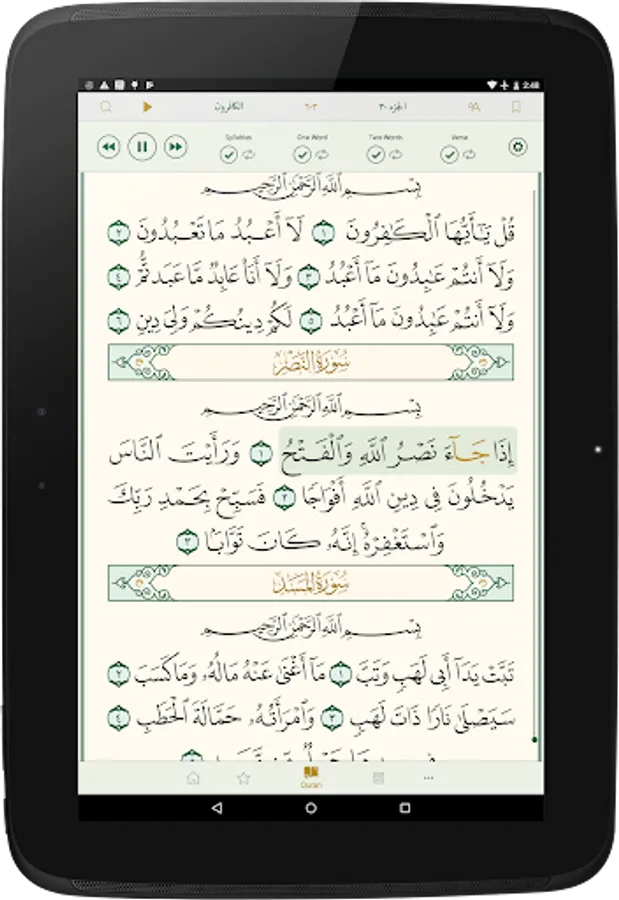 2:48
الكافرون ٦٠٣ الجزء ٣٠
Syllables One Word Two Words Verse
بِسْمِ اللَّهِ الرَّحْمَٰنِ الرَّحِيمِ
قُلْ يَٰٓأَيُّهَا الْكَٰفِرُونَ ١ لَآ أَعْبُدُ مَا تَعْبُدُونَ ٢
وَلَآ أَنتُمْ عَٰبِدُونَ مَآ أَعْبُدُ ٣ وَلَآ أَنَا۠ عَابِدٌ مَّا عَبَدتُّمْ ٤
وَلَآ أَنتُمْ عَٰبِدُونَ مَآ أَعْبُدُ ٥ لَكُمْ دِينُكُمْ وَلِيَ دِينِ ٦
سُورَةُ النَّصْرِ
بِسْمِ اللَّهِ الرَّحْمَٰنِ الرَّحِيمِ
إِذَا جَآءَ نَصْرُ اللَّهِ وَالْفَتْحُ ١ وَرَأَيْتَ النَّاسَ
يَدْخُلُونَ فِي دِينِ اللَّهِ أَفْوَاجًا ٢ فَسَبِّحْ بِحَمْدِ رَبِّكَ
وَاسْتَغْفِرْهُ إِنَّهُۥ كَانَ تَوَّابًۢا ٣
سُورَةُ المَسَدِ
بِسْمِ اللَّهِ الرَّحْمَٰنِ الرَّحِيمِ
تَبَّتْ يَدَآ أَبِي لَهَبٍ وَتَبَّ ١ مَآ أَغْنَىٰ عَنْهُ مَالُهُۥ وَمَا كَسَبَ ٢
سَيَصْلَىٰ نَارًا ذَاتَ لَهَبٍ ٣ وَامْرَأَتُهُۥ حَمَّالَةَ الْحَطَبِ ٤
Quran